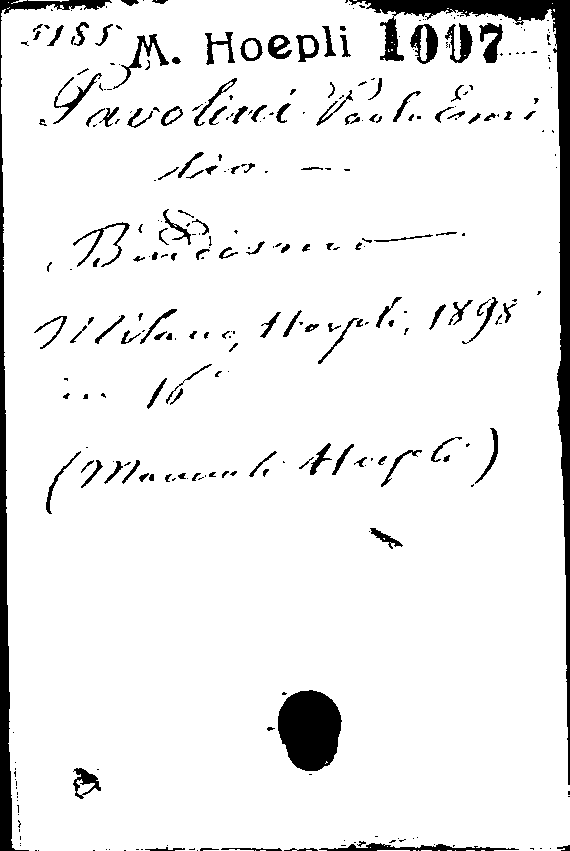 5185 M. Hoepli 1007
Pavolini Paolo Emi
lio. —
Buddismo —
Milano, Hoepli, 1898
in 16°
(Manuali Hoepli)